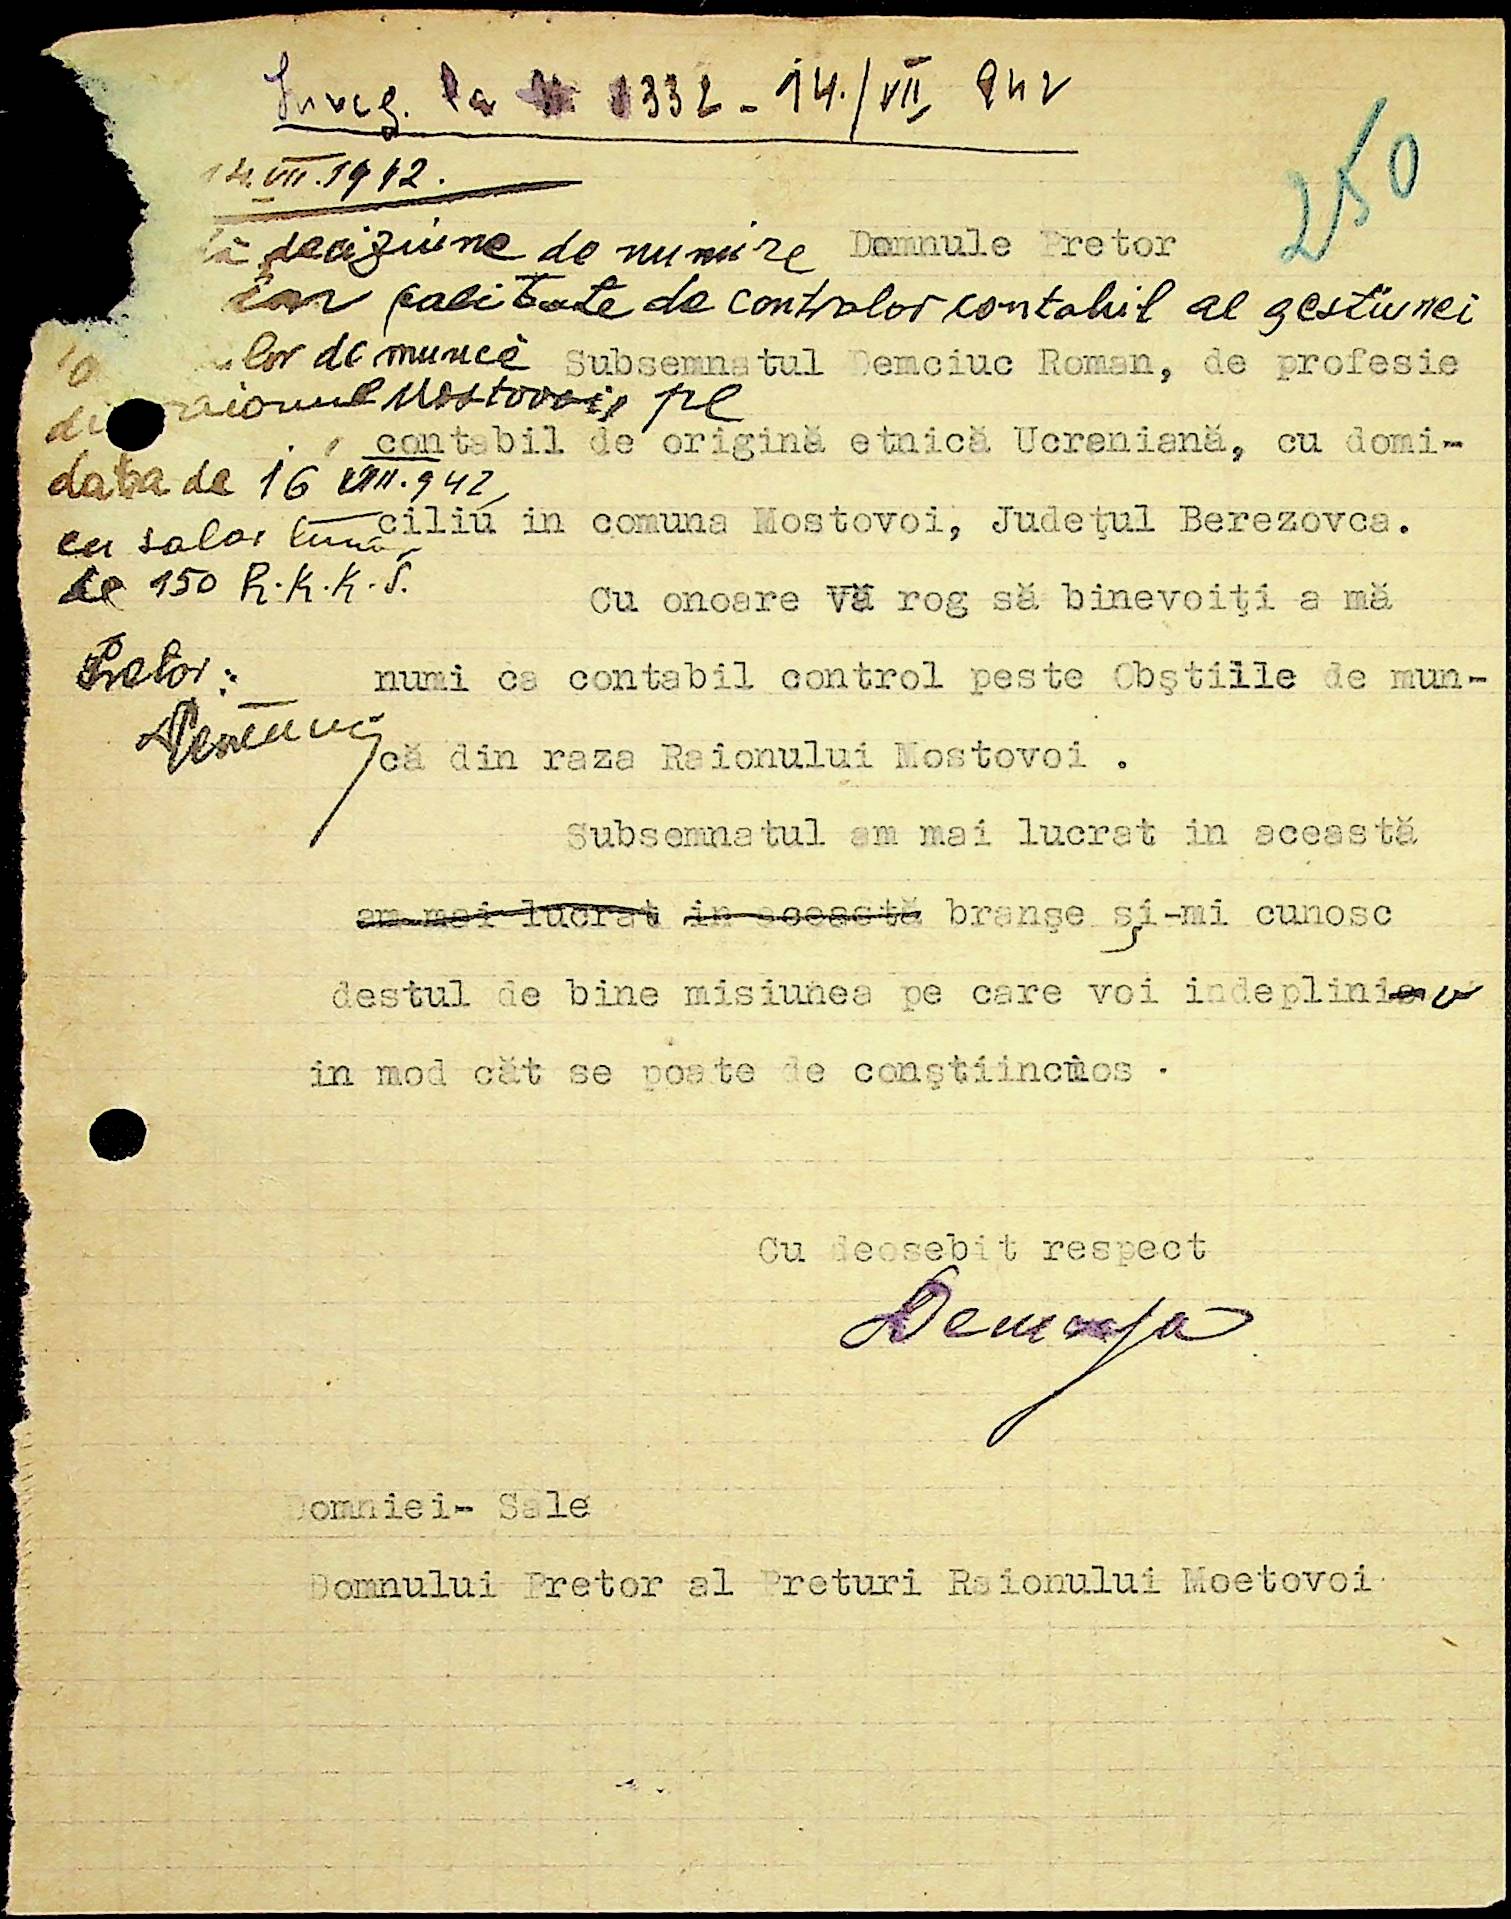 Inreg. la 1332 - 14./VII, 942
250
14.VII.1942.
deciziune de numire
Domnule Pretor
calitate de controlor contabil al gestiunei
lor de muncă
Subsemnatul Demciuc Roman, de profesie
raionul Mostovoi, pe
contabil de origină etnică Ucreniană, cu domi-
data de 16 VII.942,
ciliu in comuna Mostovoi, Judeţul Berezovca.
cu salar lunar
de 150 R.K.K.S.
Cu onoare Vă rog să binevoiţi a mă
Pretor:
numi ca contabil control peste Obştiile de mun-
că din raza Raionului Mostovoi .
Subsemnatul am mai lucrat in această
am mai lucrat in această branşe şi-mi cunosc
destul de bine misiunea pe care voi indeplini
in mod căt se poate de conştiincios .
Cu deosebit respect
Domniei- Sale
Domnului Pretor al Preturi Raionului Moetovoi